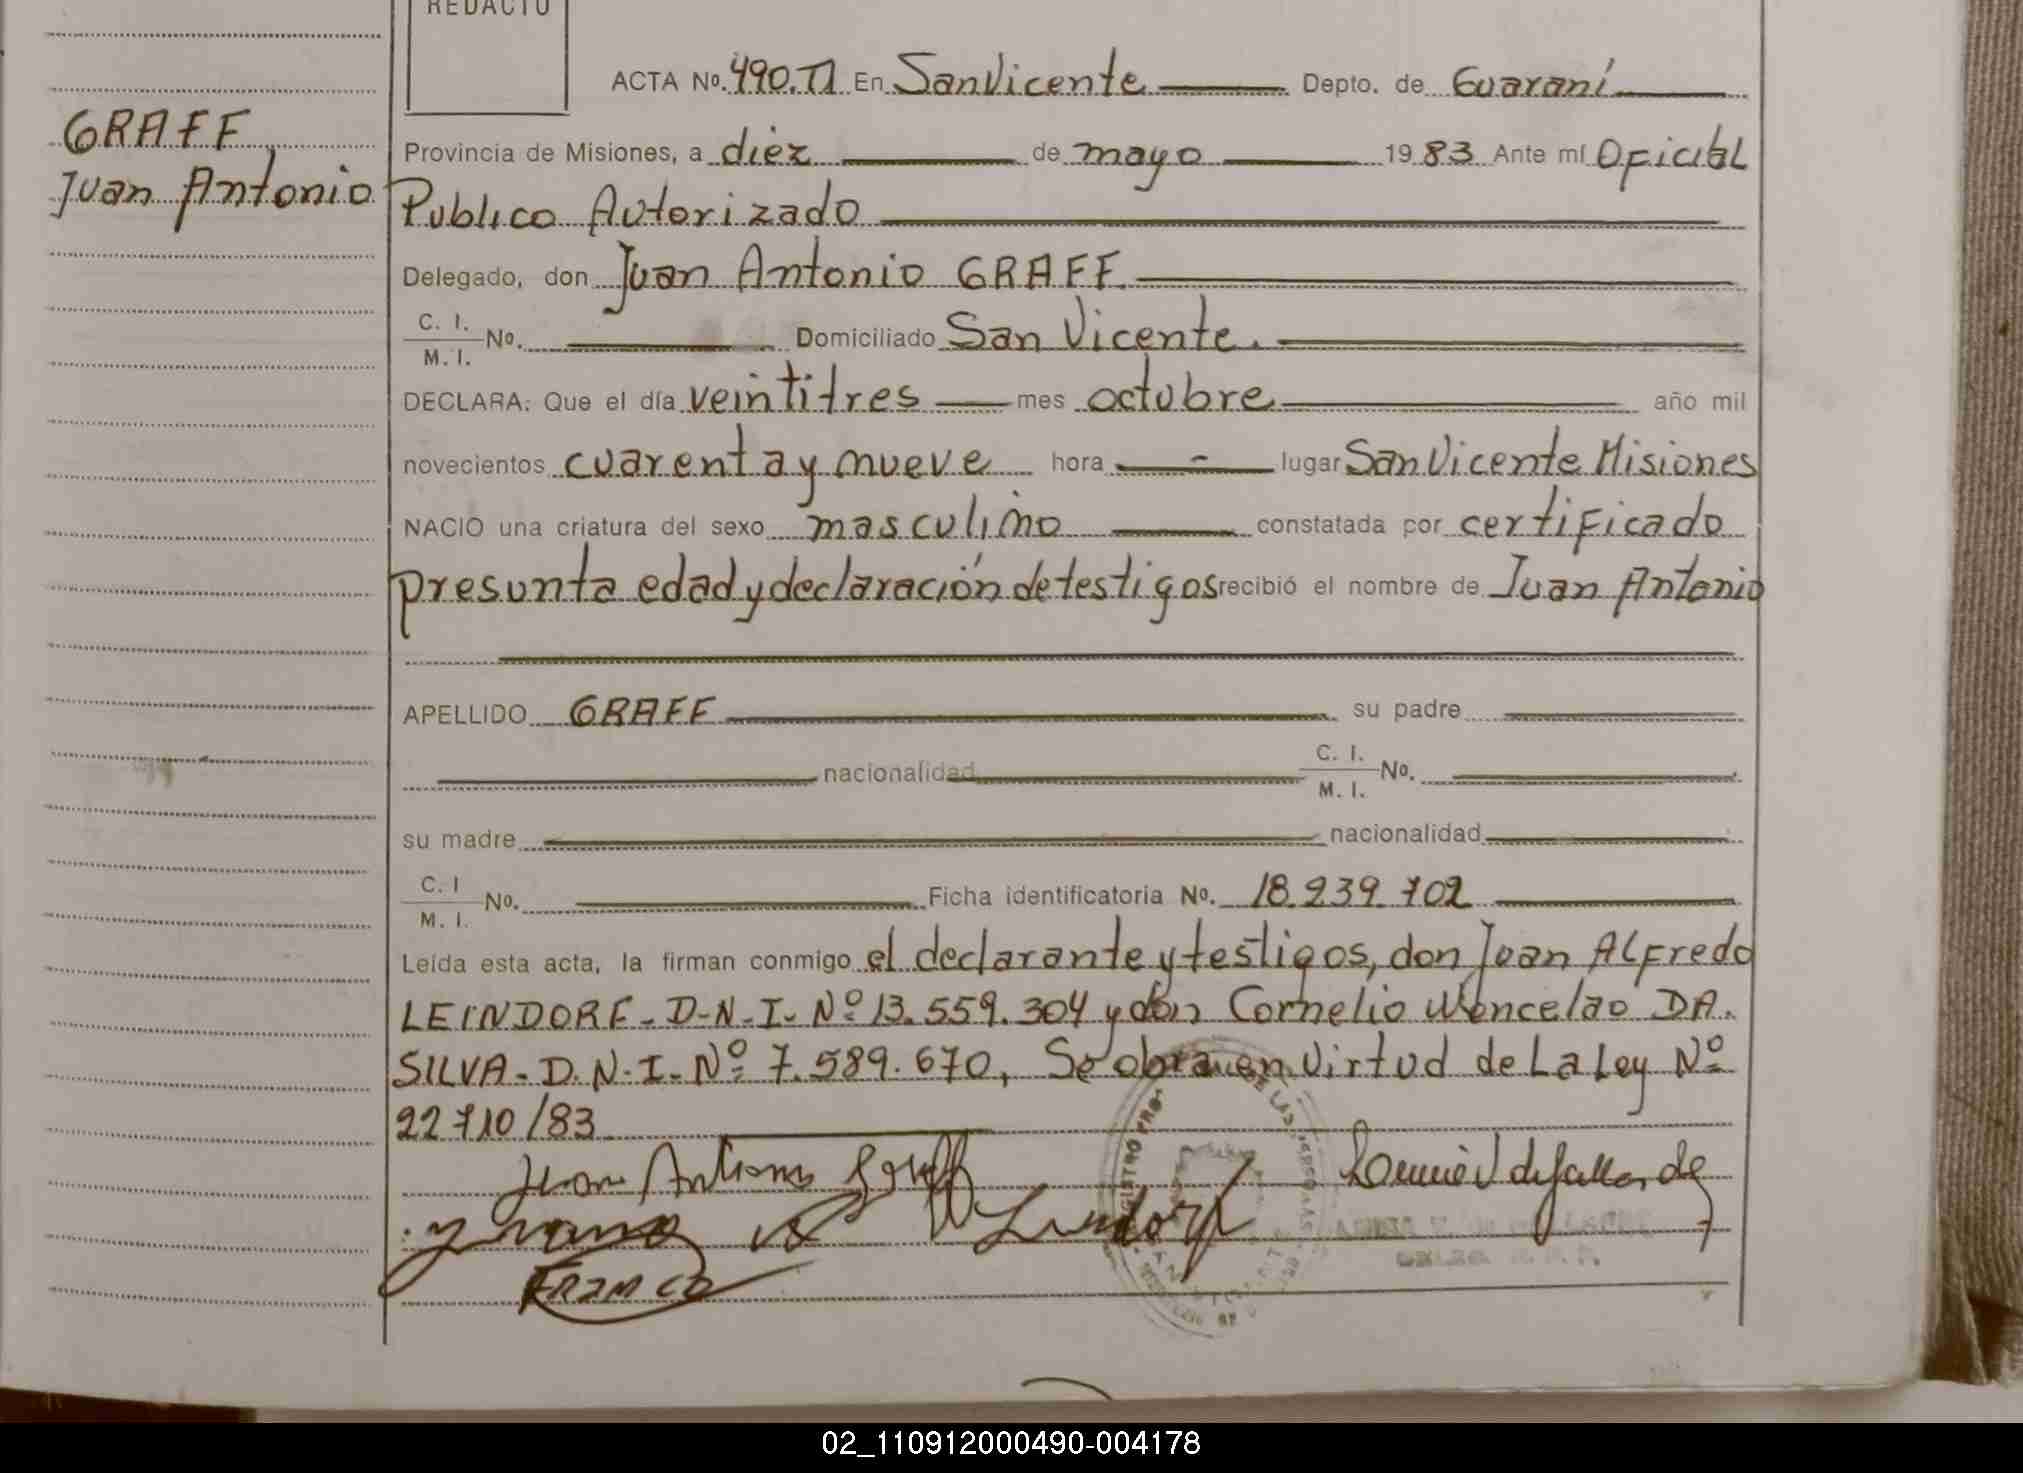 REDACTO
ACTA Nº. 490.TI En San Vicente Depto. de Guaraní
GRAFF
Provincia de Misiones, a diez de mayo 19 83 Ante mí Oficial
Juan Antonio
Publico Autorizado
Delegado, don Juan Antonio GRAFF.
C. I.
M. I. Nº. Domiciliado San Vicente.
DECLARA: Que el día veintitres mes octubre año mil
novecientos cuarenta y nueve hora - lugar San Vicente Misiones
NACIO una criatura del sexo masculino constatada por certificado
presunta edad y declaración de testigos recibió el nombre de Juan Antonio
APELLIDO GRAFF su padre
nacionalidad C. I.
M. I. Nº.
su madre nacionalidad
C. I
M. I. Nº. Ficha identificatoria Nº. 18.239.702
Leída esta acta, la firman conmigo el declarante y testigos, don Juan ALFredo
LEINDORF - D-N-I- Nº 13.559.304 y don Cornelio Wencelao DA.
SILVA - D.N.I- Nº 7.589.670, Se obra en virtud de La Ley Nº
22710/83
Juan Antonio Graff
Leindorf
FRANCO
02_110912000490-004178